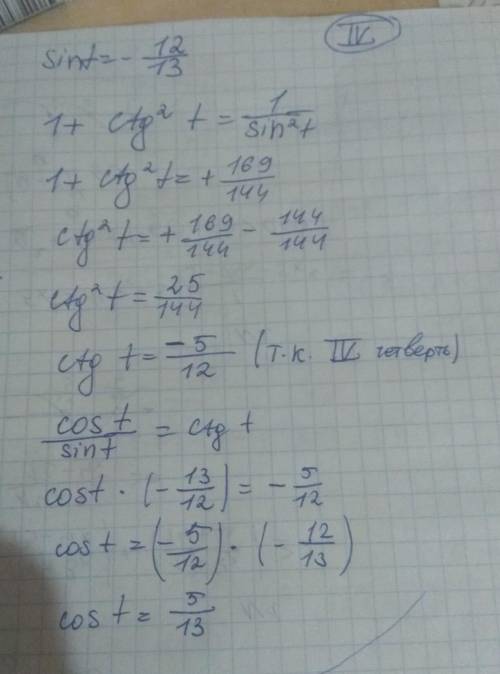 IV.
sint = - 12/13
1 + ctg² t = 1/sin²t
1 + ctg²t = + 169/144
ctg²t = + 169/144 - 144/144
ctg²t = 25/144
ctg t = -5/12 (т.к. IV четверть)
cos t/sint = ctg t
cost · (- 13/12) = - 5/12
cos t = (- 5/12) · (- 12/13)
cos t = 5/13